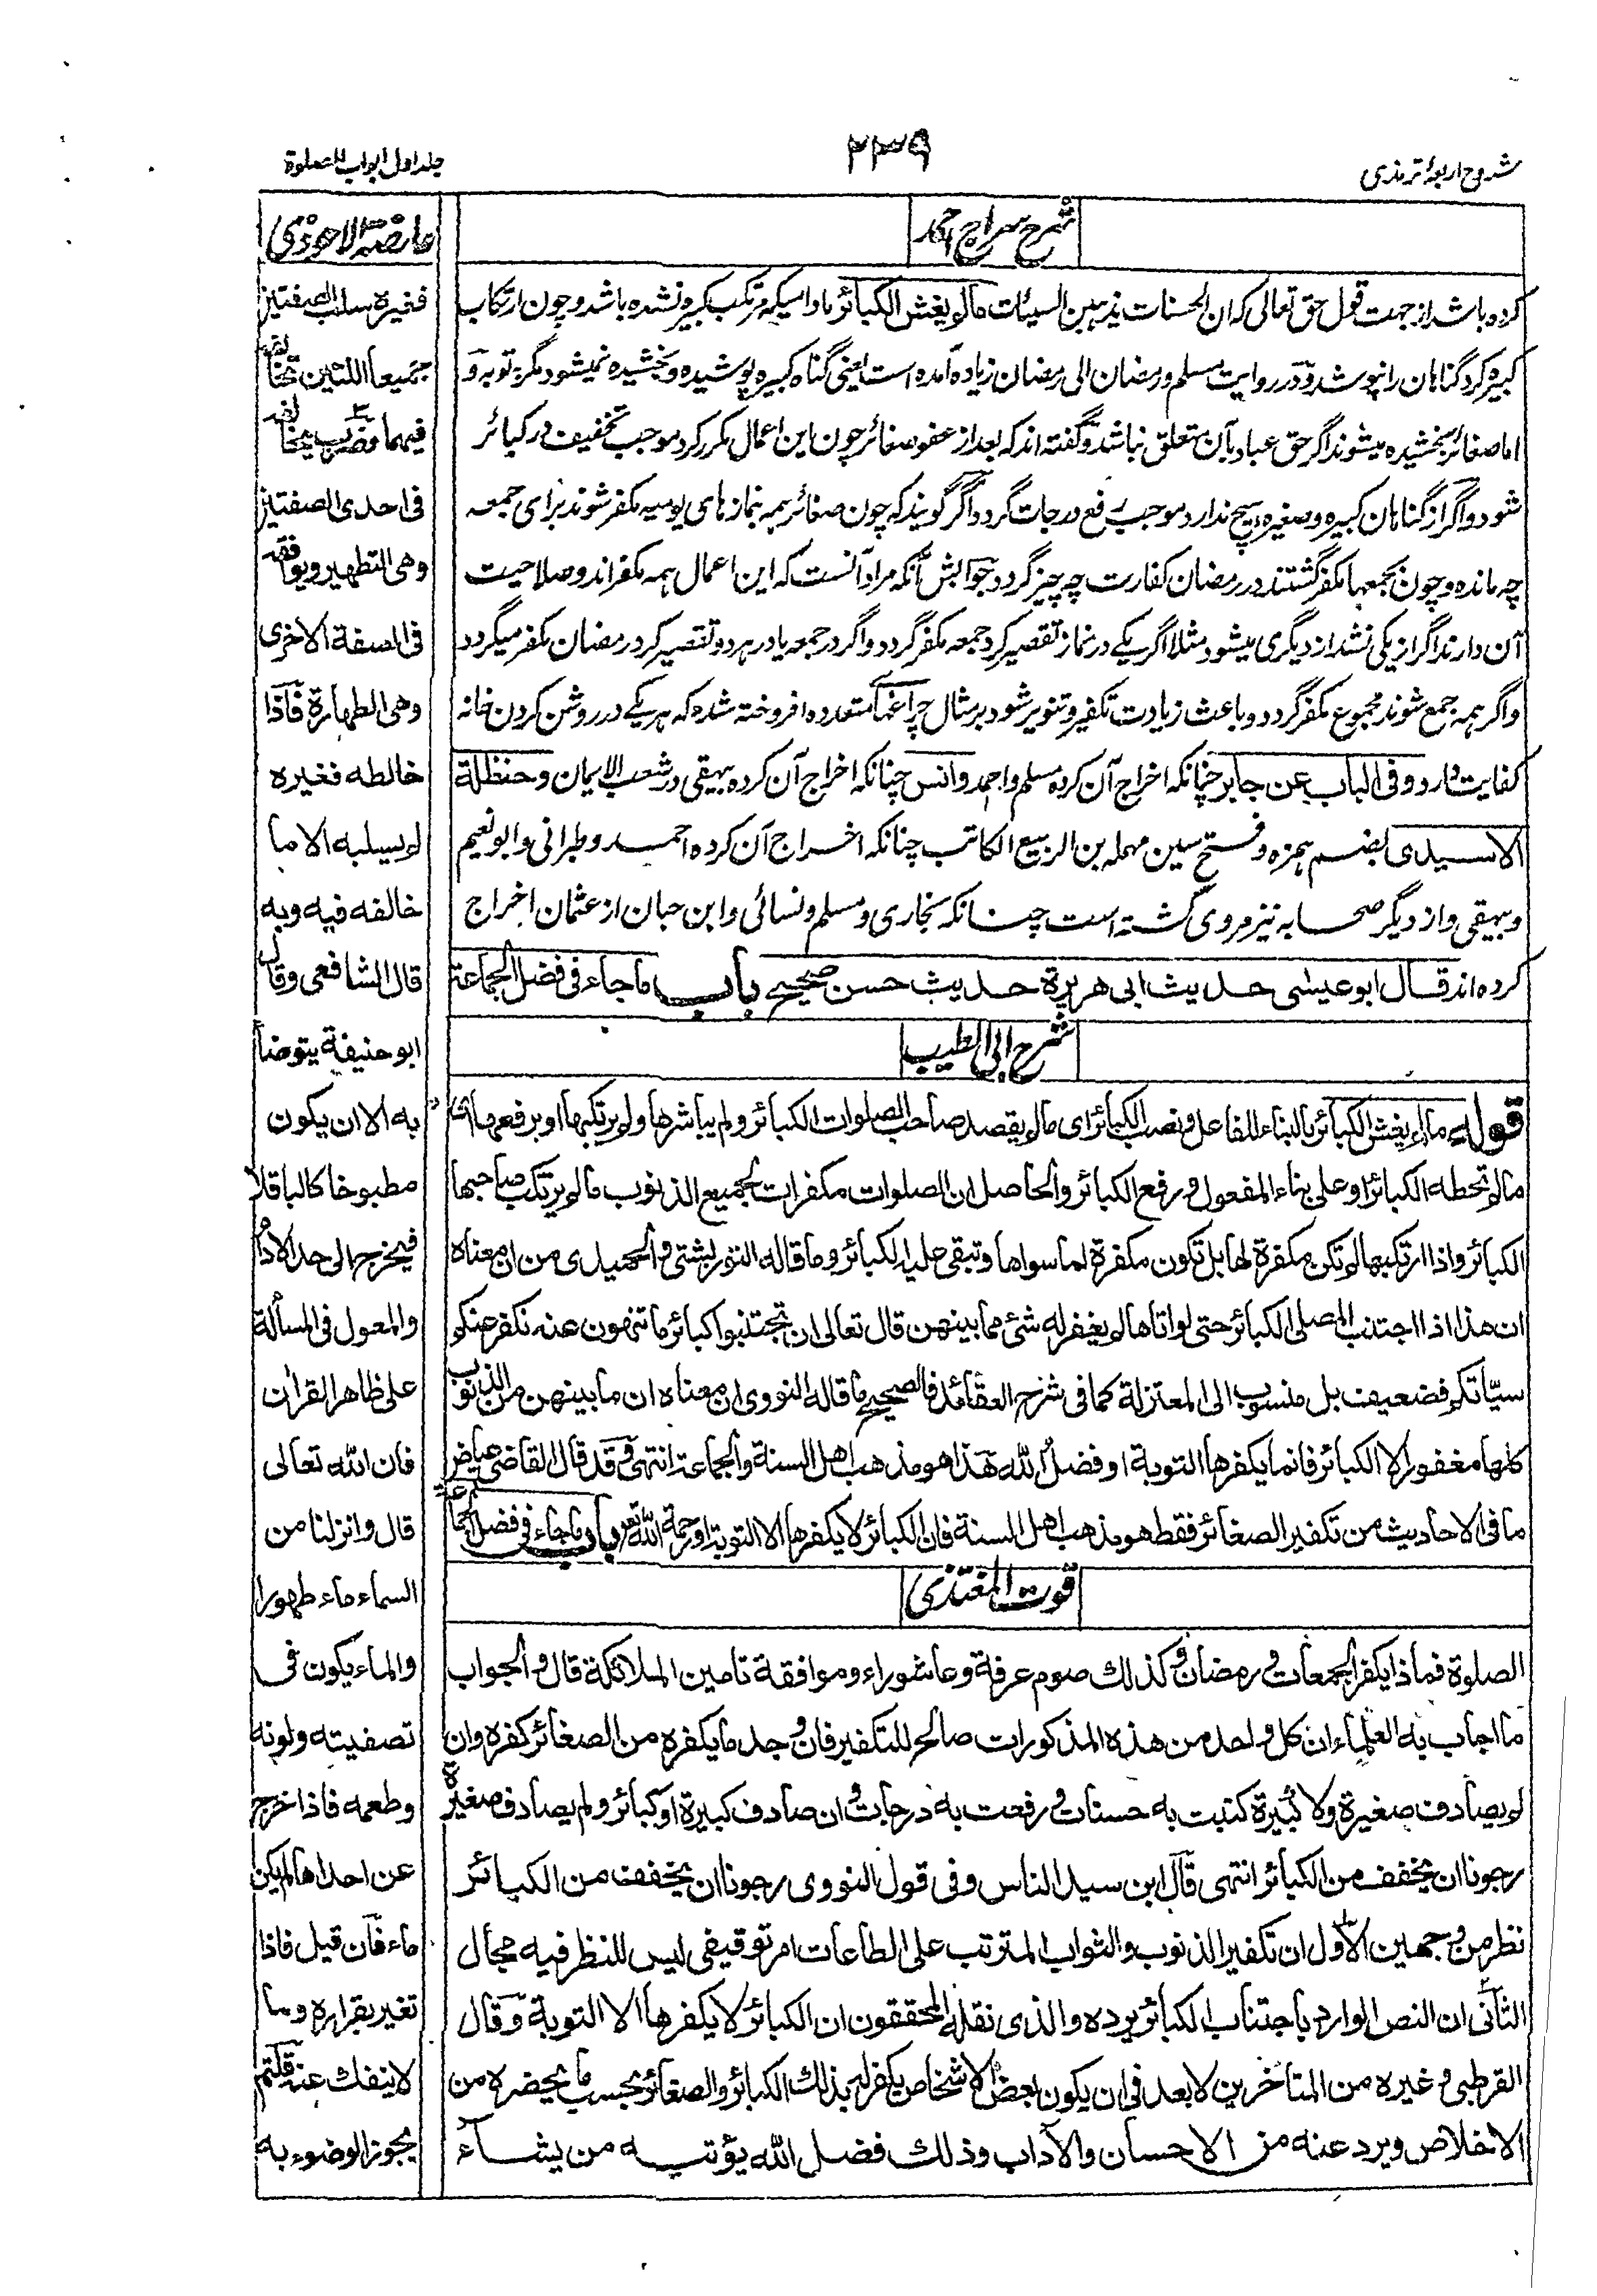 شروح اربعهٔ ترمذی
۲۳۹
جلد اول ابواب الصلوة
شرح سراج احمد
کرده باشد از جهت قول حق تعالی که ان الحسنات یذهبن السیئات مالم یغش الکبائر مادامیکه مرتکب کبیره نشده باشد و چون ارتکاب
کبیره کرد گناهان را نپوشد و در روایت مسلم و رمضان الی رمضان زیاده آمده است یعنی گناه کبیره پوشیده و بخشیده نمیشود مگر به توبه و
اما صغائر بخشیده میشوند اگر حق عباد بآن متعلق نباشد و گفته اند که بعد از عفو صغائر چون این اعمال مکرر کرد موجب تخفیف در کبائر
شود و اگر از گناهان کبیره و صغیره هیچ ندارد موجب رفع درجات گردد و اگر گویند که چون صغائر همه بنمازهای یومیه مکفر شوند برای جمعه
چه مانده و چون بجمعها مکفر گشتند در رمضان کفارت چه چیز گردد جوابش آنکه مراد آنست که این اعمال همه مکفراند و صلاحیت
آن دارند اگر از یکی نشد از دیگری میشود مثلا اگر یکے در نماز تقصیر کرد جمعه مکفر گردد و اگر در جمعه یا در هر دو تقصیر کرد رمضان مکفر میگردد
و اگر همه جمع شوند مجموع مکفر گردد و باعث زیادت تکفیر و تنویر شود بر مثال چراغها متعدده افروخته شده که هر یکے در روشن کردن خانه
کفایت دارد وفی الباب عن جابر چنانکه اخراج آن کرده مسلم و احمد وانس چنانکه اخراج آن کرده بیهقی در شعب الایمان وحنظلة
الاسیدی بضم همزه و فتح سین مهمله بن الربیع الکاتب چنانکه اخراج آن کرده احمد و طبرانی و ابو نعیم
و بیهقی و از دیگر صحابه نیز مروی گشته است چنانکه بخاری و مسلم و نسائی و ابن حبان از عثمان اخراج
کرده اند قال ابو عیسی حدیث ابی هریرة حدیث حسن صحیح باب ماجاء فی فضل الجماعة
شرح ابی الطیب
قوله مالم یغش الکبائر بالبناء للفاعل ونصب الکبائر ای مالم یقصد صاحب الصلوات الکبائر ولم یباشرها ولم یرتکبها او برفعها ای
مالم تحطه الکبائر او علی بناء المفعول ورفع الکبائر والحاصل ان الصلوات مکفرات لجمیع الذنوب مالم یرتکب صاحبها
الکبائر واذا ارتکبها لم تکن مکفرة لها بل تکون مکفرة لما سواها وتبقی علیه الکبائر وما قاله التوربشتی والحمیدی من ان معناه
ان هذا اذا اجتنب المصلی الکبائر حتی لو اتاها لم یغفر له شئ مما بینهن قال تعالی ان تجتنبوا کبائر ما تنهون عنه نکفر عنکم
سیّاتکم فضعیف بل منسوب الی المعتزلة کما فی شرح العقائد فالصحیح ما قاله النووی ان معناه ان ما بینهن من الذنوب
کلها مغفور الا الکبائر فانما یکفرها التوبة او فضل الله هذا هو مذهب اهل السنة والجماعة انتهی وقد قال القاضی عیاض
ما فی الاحادیث من تکفیر الصغائر فقط هو مذهب اهل السنة فان الکبائر لا یکفرها الا التوبة او رحمة الله باب ماجاء فی فضل الجماعة
قوت المغتذی
الصلوة فماذا یکفر الجمعات ورمضان وکذلك صوم عرفة وعاشوراء وموافقة تامین الملائکة قال والجواب
ما اجاب به العلماء ان کل واحد من هذه المذکورات صالح للتکفیر فان وجد ما یکفره من الصغائر کفره وان
لم یصادف صغیرة ولا کبیرة کتبت به حسنات ورفعت به درجات وان صادف کبیرة او کبائر ولم یصادف صغیرة
رجونا ان یخفف من الکبائر انتهی قال ابن سید الناس وفی قول النووی رجونا ان یخفف من الکبائر
نظر من وجهین الاول ان تکفیر الذنوب والثواب المترتب علی الطاعات امر توقیفی لیس للنظر فیه مجال
الثانی ان النص الوارد باجتناب الکبائر یرده والذی نقله المحققون ان الکبائر لا یکفرها الا التوبة وقال
القرطبی وغیره من المتأخرین لا بعد فی ان یکون بعض الاشخاص یکفر له بذلك الکبائر والصغائر بحسب ما یحضره من
الاخلاص ویرد عنه من الاحسان والآداب وذلك فضل الله یؤتیه من یشاء
عارضة الاحوذی
فغیره سلب الصفتین
جمیعا اللتین
فیهما
فی احدی الصفتین
وهی التطهیر
فی الصفة الاخری
وهی الطهارة فاذا
خالطه فغیره
لم یسلبه الا ما
خالفه فیه وبه
قال الشافعی وقال
ابو حنیفة یتوضأ
به الا ان یکون
مطبوخا کالباقلا
فیخرج الی حد الادم
والمعول فی المسألة
علی ظاهر القران
فان الله تعالی
قال وانزلنا من
السماء ماء طهورا
والماء یکون فی
تصفیته ولونه
وطعمه فاذا خرج
عن احداها لم یکن
ماء فان قیل فاذا
تغیر بقراره وما
لا ینفك عنه قلتم
یجوز الوضوء به